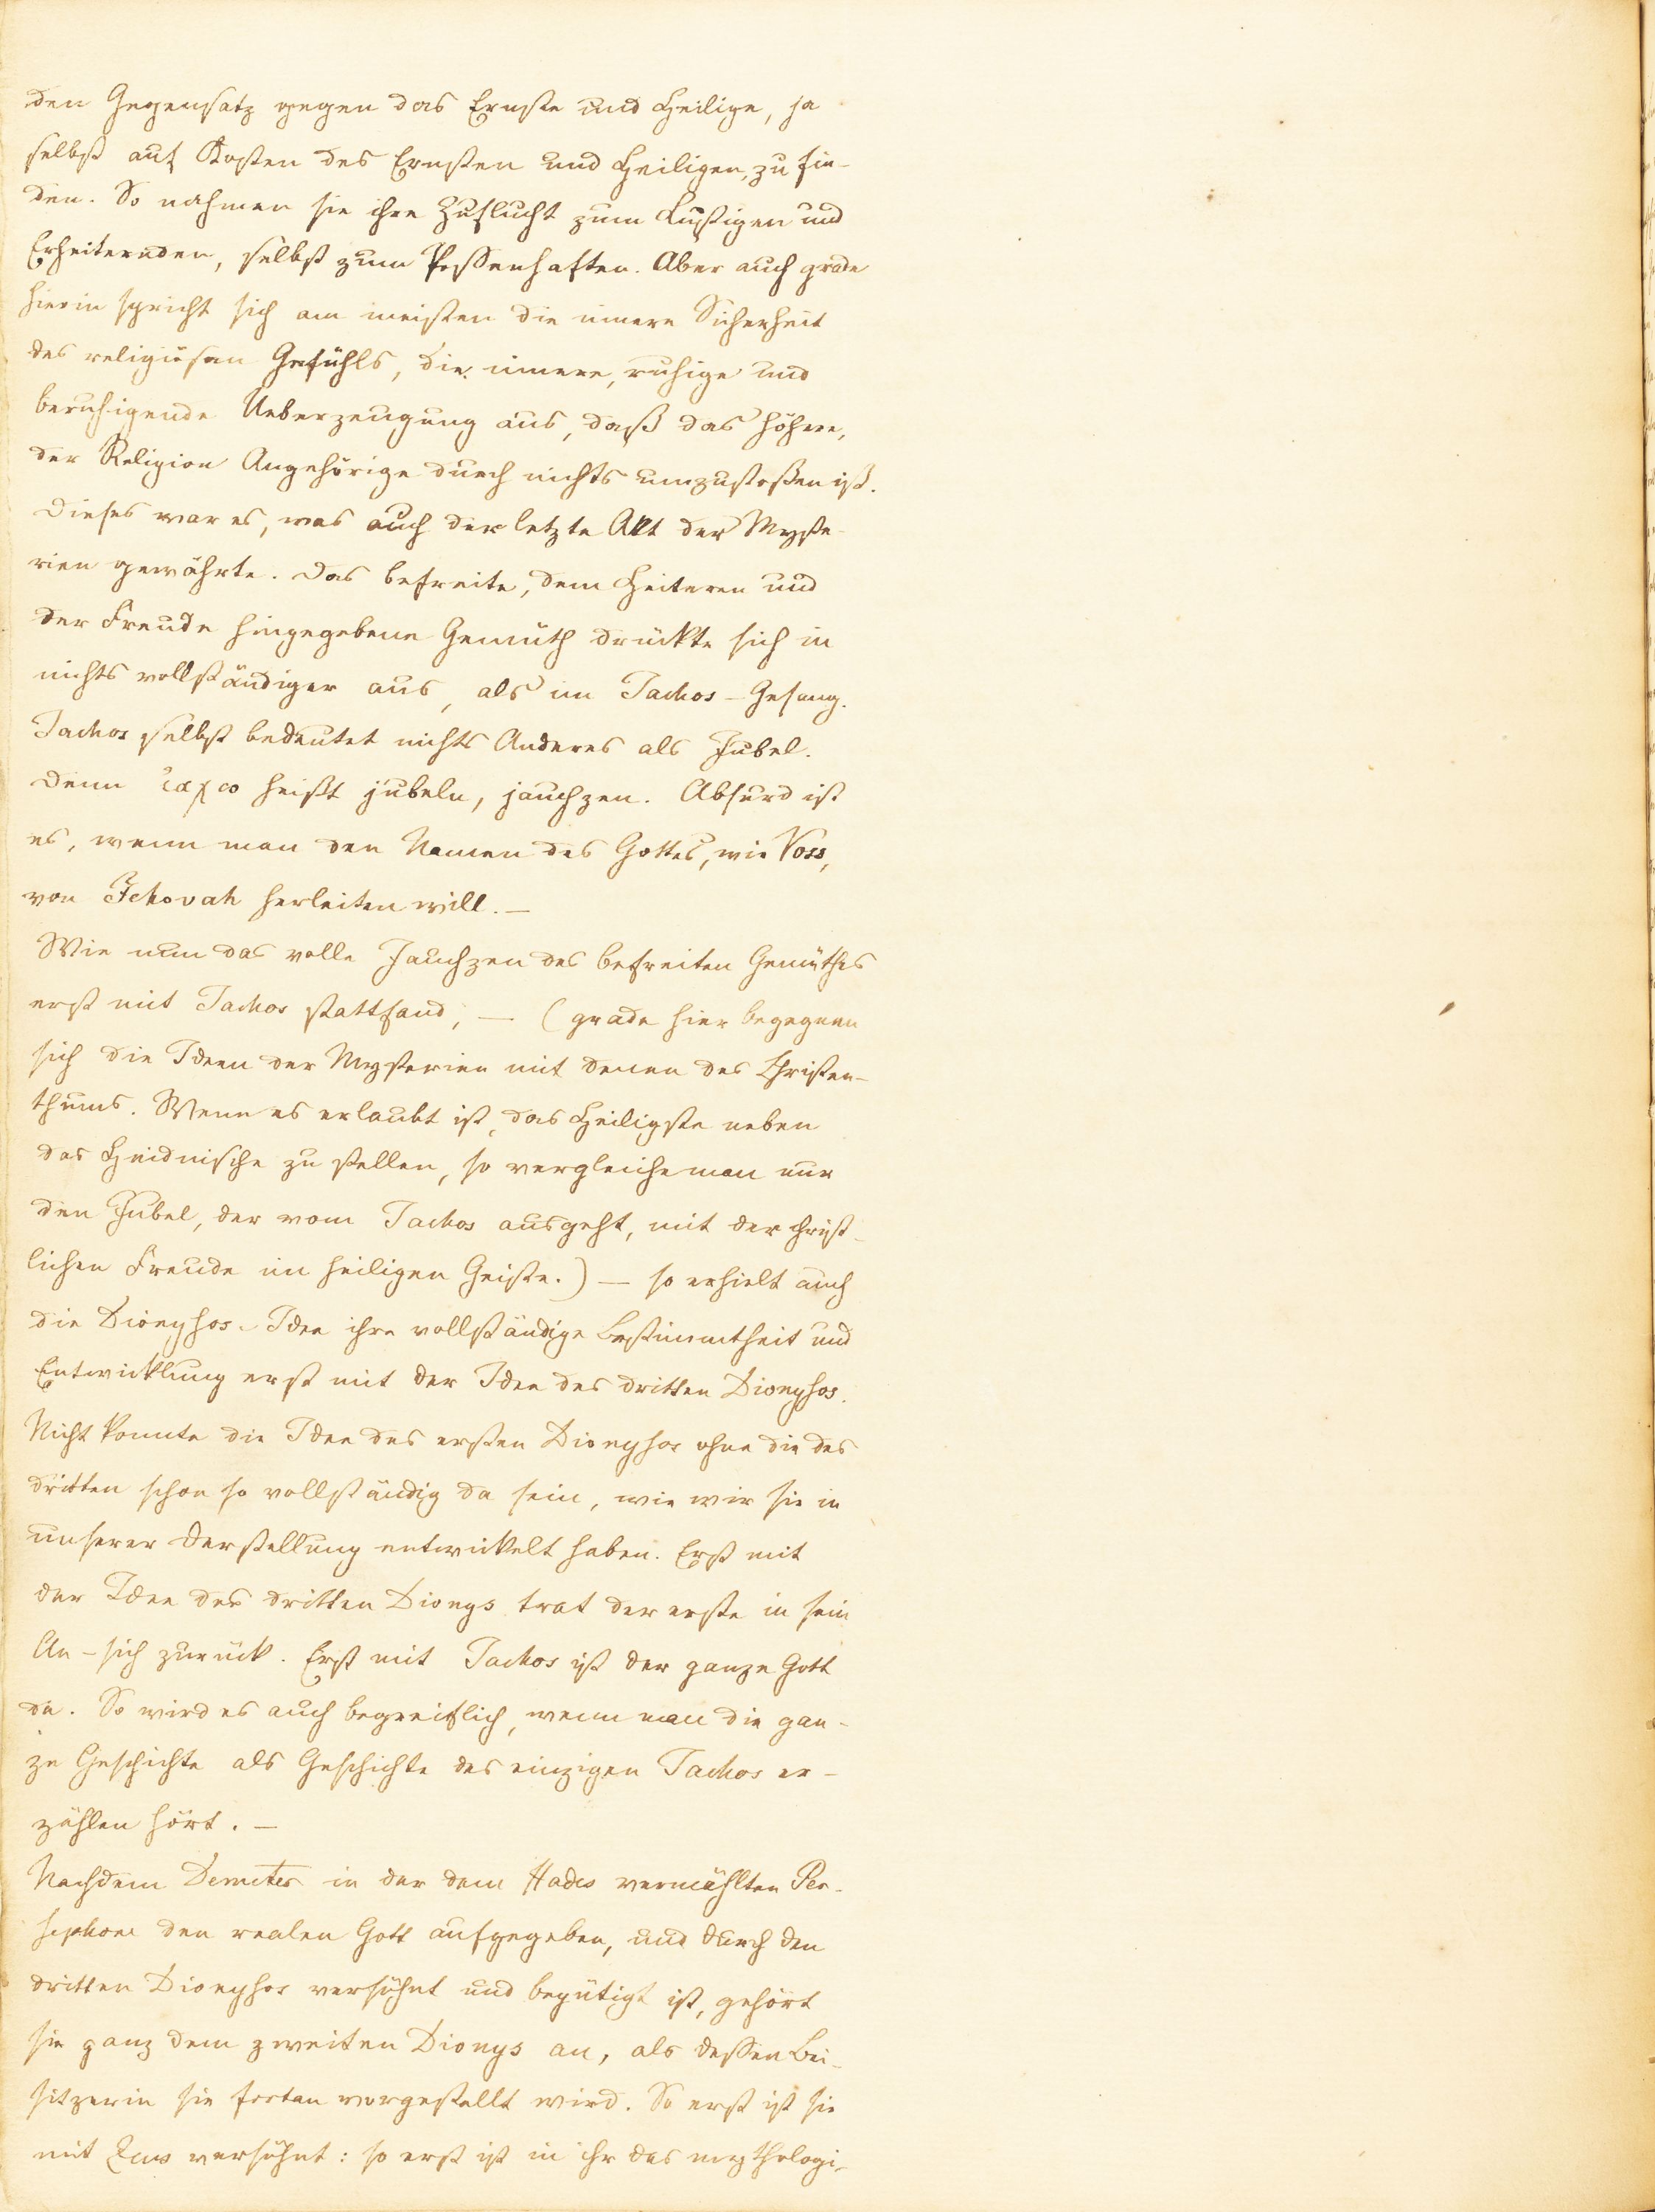 den Gegensatz gegen das Ernste und Heilige, ja
selbst auf Kosten des Ernsten und Heiligen, zu fin-
den. So nahmen sie ihre Zuflucht zum Lustigen und
Erheiternden, selbst zum Possenhaften. Aber auch grade
hierin spricht sich am meisten die innere Sicherheit
des religiösen Gefühls, die innere, ruhige und
beruhigende Ueberzeugung aus, daß das Höhere,
der Religion Angehörige durch nichts umzustoßen ist.
Dieses war es, was auch der letzte Akt der Myste-
rien gewährte. Das befreite, dem Heiteren und
der Freude hingegebene Gemüth drückte sich in
nichts vollständiger aus, als im Iachos-Gesang.
Iachos selbst bedeutet nichts Anderes als Jubel.
Denn ἰαχω heißt jubeln, jauchzen. Absurd ist
es, wenn man den Namen des Gottes, wie Voss,
von Jehovah herleiten will. –
Wie nun das volle Jauchzen des befreiten Gemüthes
erst mit Iachos stattfand, – (grade hier begegnen
sich die Ideen der Mysterien mit denen des Christen-
thums. Wenn es erlaubt ist, das Heiligste neben
das Heidnische zu stellen, so vergleiche man nur
den Jubel, der vom Iachos ausgeht, mit der christ-
lichen Freude im heiligen Geiste.) – so erhielt auch
die Dionysos-Idee ihre vollständige Bestimmtheit und
Entwicklung erst mit der Idee des dritten Dionysos.
Nicht konnte die Idee des ersten Dionysos ohne die des
dritten schon so vollständig da sein, wie wir sie in
unserer Darstellung entwickelt haben. Erst mit
der Idee des dritten Dionys trat der erste in sein
An-sich zurück. Erst mit Iachos ist der ganze Gott
da. So wird es auch begreiflich, wenn man die gan-
ze Geschichte als Geschichte des einzigen Iachos er-
zählen hört. –
Nachdem Demeter in der dem Hades vermählten Per-
sephone den realen Gott aufgegeben, und durch den
dritten Dionysos versöhnt und begütigt ist, gehört
sie ganz dem zweiten Dionys an, als dessen Bei-
sitzerin sie fortan vorgestellt wird. So erst ist sie
mit Zeus versöhnt: so erst ist in ihr das mythologi-